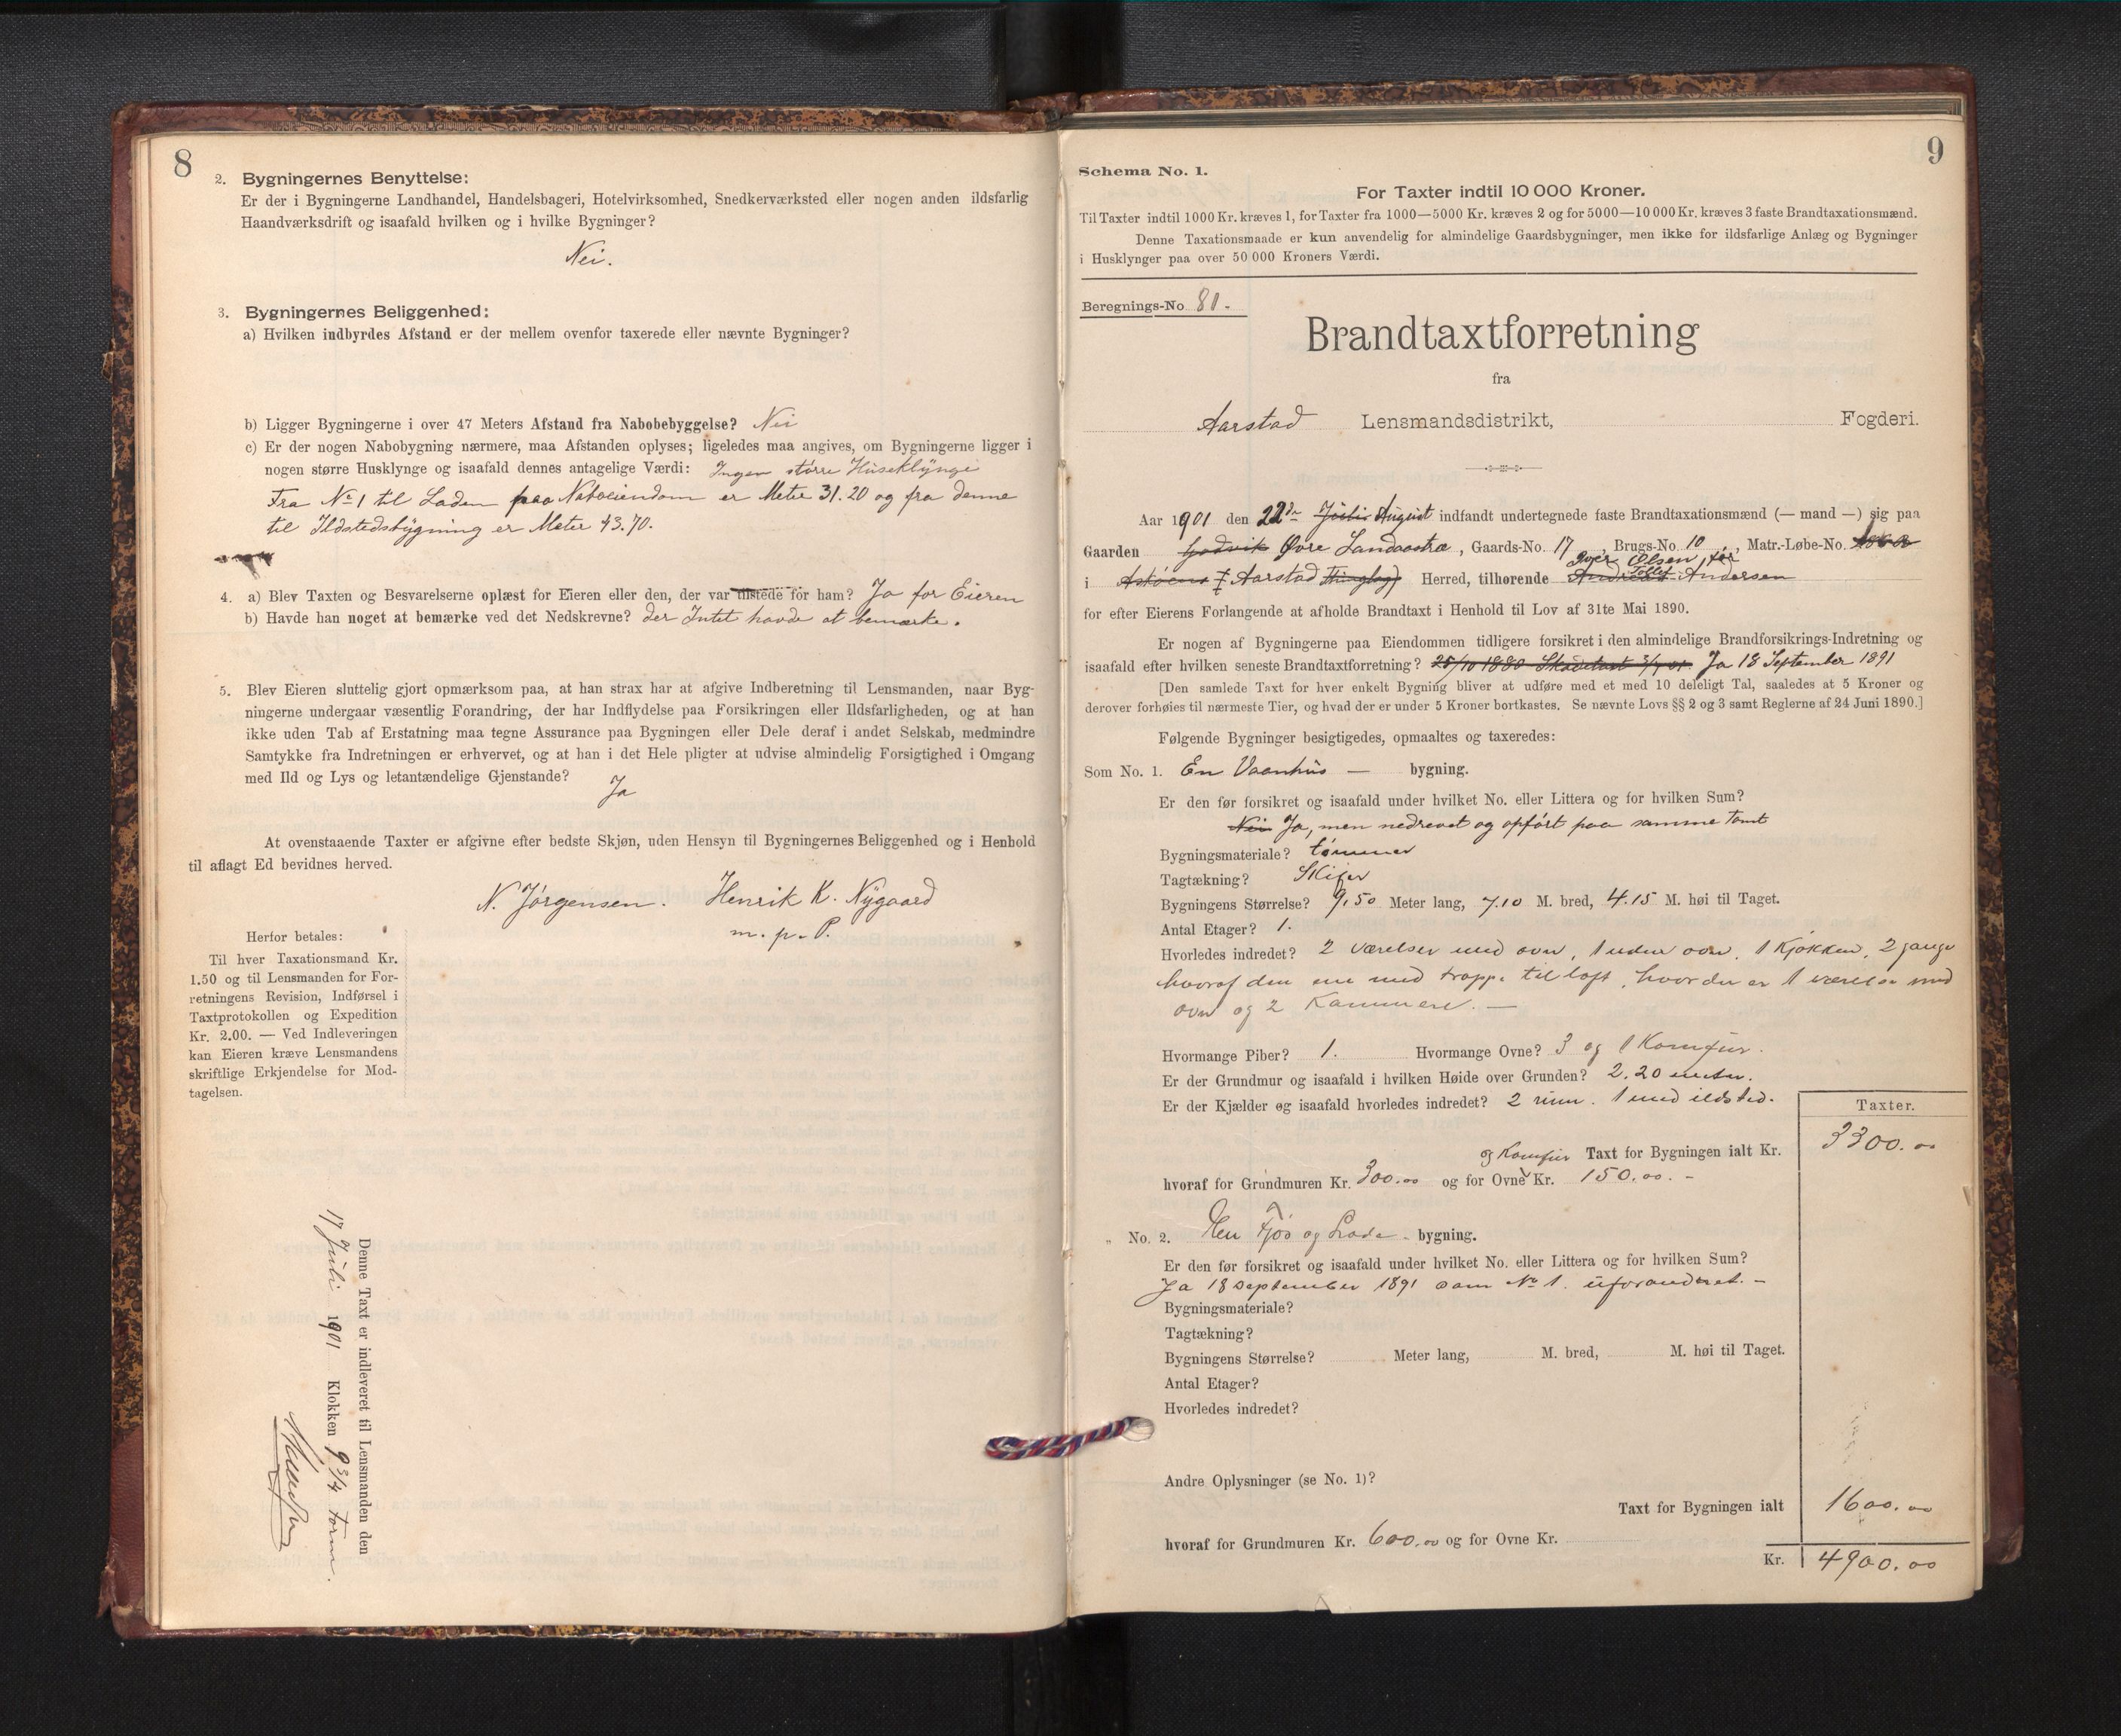 8
2. Bygningernes Benyttelse:
Er der i Bygningerne Landhandel, Handelsbageri, Hotelvirksomhed, Snedkerværksted eller nogen anden ildsfarlig
Haandværksdrift og isaafald hvilken og i hvilke Bygninger?
Nei.
3. Bygningernes Beliggenhed:
a) Hvilken indbyrdes Afstand er der mellem ovenfor taxerede eller nævnte Bygninger?
b) Ligger Bygningerne i over 47 Meters Afstand fra Nabobebyggelse? Nei
c) Er der nogen Nabobygning nærmere, maa Afstanden oplyses; ligeledes maa angives, om Bygningerne ligger i
nogen større Husklynge og isaafald dennes antagelige Værdi: Ingen större Huseklynge
Fra No 1 til Laden paa Naboeiendom er Meter 31.20 og fra denne
til Ildstedsbygning er Meter 43.70.
4. a) Blev Taxten og Besvarelserne oplæst for Eieren eller den, der var tilstede for ham? Ja for Eieren
b) Havde han noget at bemærke ved det Nedskrevne? der Intet havde at bemærke.
5. Blev Eieren sluttelig gjort opmærksom paa, at han strax har at afgive Indberetning til Lensmanden, naar Byg-
ningerne undergaar væsentlig Forandring, der har Indflydelse paa Forsikringen eller Ildsfarligheden, og at han
ikke uden Tab af Erstatning maa tegne Assurance paa Bygningen eller Dele deraf i andet Selskab, medmindre
Samtykke fra Indretningen er erhvervet, og at han i det Hele pligter at udvise almindelig Forsigtighed i Omgang
med Ild og Lys og letantændelige Gjenstande? Ja
At ovenstaaende Taxter er afgivne efter bedste Skjøn, uden Hensyn til Bygningernes Beliggenhed og i Henhold
til aflagt Ed bevidnes herved.
N. Jörgensen. Henrik K. Nygaard
m. p. P.
Herfor betales:
Til hver Taxationsmand Kr.
1.50 og til Lensmanden for For-
retningens Revision, Indførsel i
Taxtprotokollen og Expedition
Kr. 2.00. — Ved Indleveringen
kan Eieren kræve Lensmandens
skriftlige Erkjendelse for Mod-
tagelsen.
Denne Taxt er indleveret til Lensmanden den
17 Juli 1901 Klokken 9 3/4 Form.
9
Schema No. 1.
For Taxter indtil 10 000 Kroner.
Til Taxter indtil 1000 Kr. kræves 1, for Taxter fra 1000—5000 Kr. kræves 2 og for 5000—10 000 Kr. kræves 3 faste Brandtaxationsmænd.
Denne Taxationsmaade er kun anvendelig for almindelige Gaardsbygninger, men ikke for ildsfarlige Anlæg og Bygninger
i Husklynger paa over 50 000 Kroners Værdi.
Beregnings-No 81.
Brandtaxtforretning
fra
Aarstad Lensmandsdistrikt, Fogderi.
Aar 1901 den 22de Juli August indfandt undertegnede faste Brandtaxationsmænd (— mand —) sig paa
Gaarden Godvik Øvre Landaastræ, Gaards-No. 17, Brugs-No. 10, Matr.-Løbe-No.
Iver Olsen för
Tollef
i Askøens Aarstad Thinglag) Herred, tilhørende Andreas Andersen
for efter Eierens Forlangende at afholde Brandtaxt i Henhold til Lov af 31te Mai 1890.
Er nogen af Bygningerne paa Eiendommen tidligere forsikret i den almindelige Brandforsikrings-Indretning og
isaafald efter hvilken seneste Brandtaxtforretning? 25/10 1880 Skadetaxt Ja 18 September 1891
[Den samlede Taxt for hver enkelt Bygning bliver at udføre med et med 10 deleligt Tal, saaledes at 5 Kroner og
derover forhøies til nærmeste Tier, og hvad der er under 5 Kroner bortkastes. Se nævnte Lovs §§ 2 og 3 samt Reglerne af 24 Juni 1890.]
Følgende Bygninger besigtigedes, opmaaltes og taxeredes:
Som No. 1. En Vaanhus — bygning.
Er den før forsikret og isaafald under hvilket No. eller Littera og for hvilken Sum?
Nei Ja, men nedrevet og opfört paa samme Tomt
Bygningsmateriale? tömmer
Tagtækning? Skifer
Bygningens Størrelse? 9,50 Meter lang, 7.10 M. bred, 4.15 M. høi til Taget.
Antal Etager? 1.
Hvorledes indredet? 2 værelser med ovn, 1 uden ovn, 1 Kjøkken, 2 gange
hvoraf den ene med trappe til loft, hvor der er 1 værelse med
ovn og 2 Kammere. —
Hvormange Piber? 1. Hvormange Ovne? 3 og 1 Komfur.
Er der Grundmur og isaafald i hvilken Høide over Grunden? 2.20 meter.
Er der Kjælder og isaafald hvorledes indredet? 2 rum. 1 med ildsted.
Taxter.
og Komfur Taxt for Bygningen ialt Kr. 3300.00
hvoraf for Grundmuren Kr. 300.00 og for Ovne Kr. 150.00. -
„ No. 2. En Fjös og Lade - bygning.
Er den før forsikret og isaafald under hvilket No. eller Littera og for hvilken Sum?
Ja 18 September 1891 som No 1. uforandret. —
Bygningsmateriale?
Tagtækning?
Bygningens Størrelse? Meter lang, M. bred, M. høi til Taget.
Antal Etager?
Hvorledes indredet?
Andre Oplysninger (se No. 1)?
Taxt for Bygningen ialt 1600.00
hvoraf for Grundmuren Kr. 600.00 og for Ovne Kr.
Kr. 4900.00